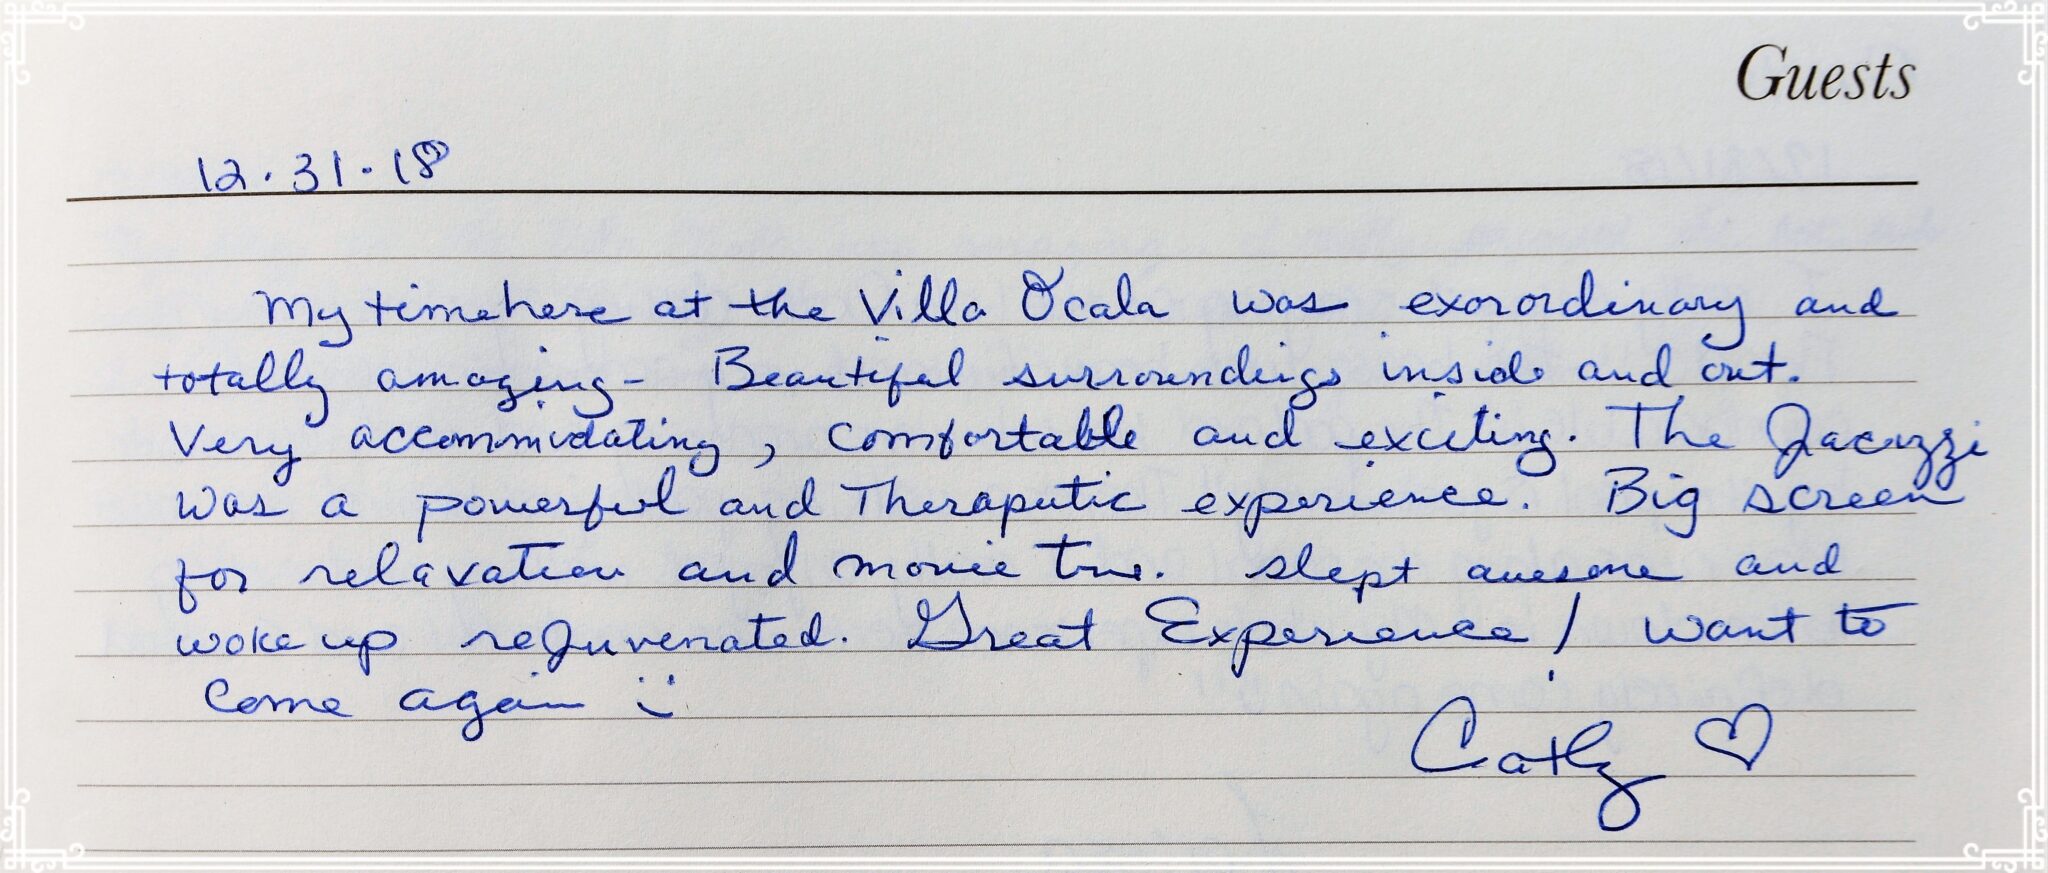 Guests
12.31.18
My time here at the Villa Ocala was exorordinary and
totally amazing- Beautiful surroundings inside and out.
Very accommidating, comfortable and exciting. The Jacuzzi
was a powerful and Theraputic experience. Big screen
for relaxation and movie time. slept awesome and
woke up rejuvenated. Great Experience! want to
come again :)
Cathy ♡